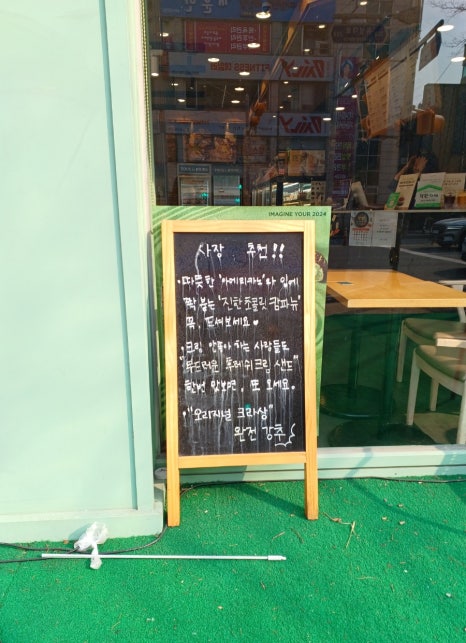 IMAGINE YOUR 2024
사장 추천!!
· 따뜻한 '아메리카노'와 입에
짝 붙는 '진한 초콜릿 캄파뉴'
꼭, 드셔보세요
· 크림 안좋아 하는 사람들도
"부드러운 후레쉬크림 샌드"
한번 맛보면, 또 오세요.
· "오리지널 크라상"
완전 강추
FITNESS